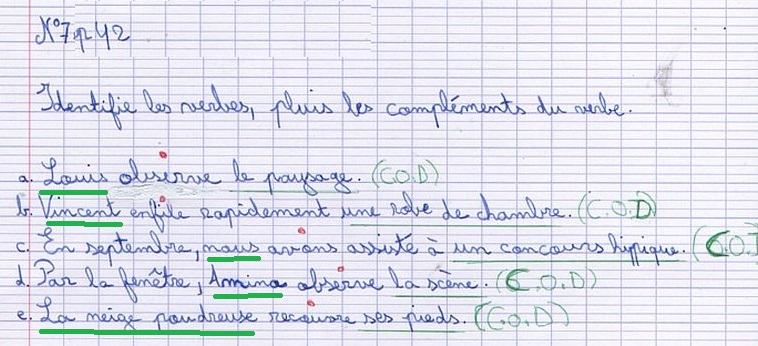 N°7p42
Identifie les verbes, pluis les compléments du verbe.
a. Louis observe le paysage. (C.O.D)
b. Vincent enfile rapidement une robe de chambre. (C.O.D)
c. En septembre, nous avons assisté à un concours hippique. (C.O.I
d. Par la fenêtre, Amina observe la scène. (C.O.D)
e. La neige poudreuse recouvre ses pieds. (C.O.D)